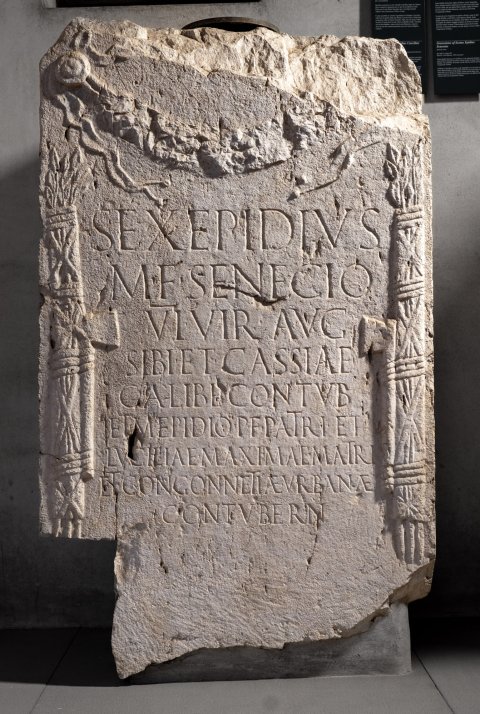 SEX EPIDIVS
M F SENECIO
VI VIR AVG
SIBI ET CASSIAE
GA LIBE CONTVB
ET M EPIDIO P F PATRI ET
LVCILIAE MAXIMAE MATR
ET CONGONNETIAE VRBANAE
CONTVBERN